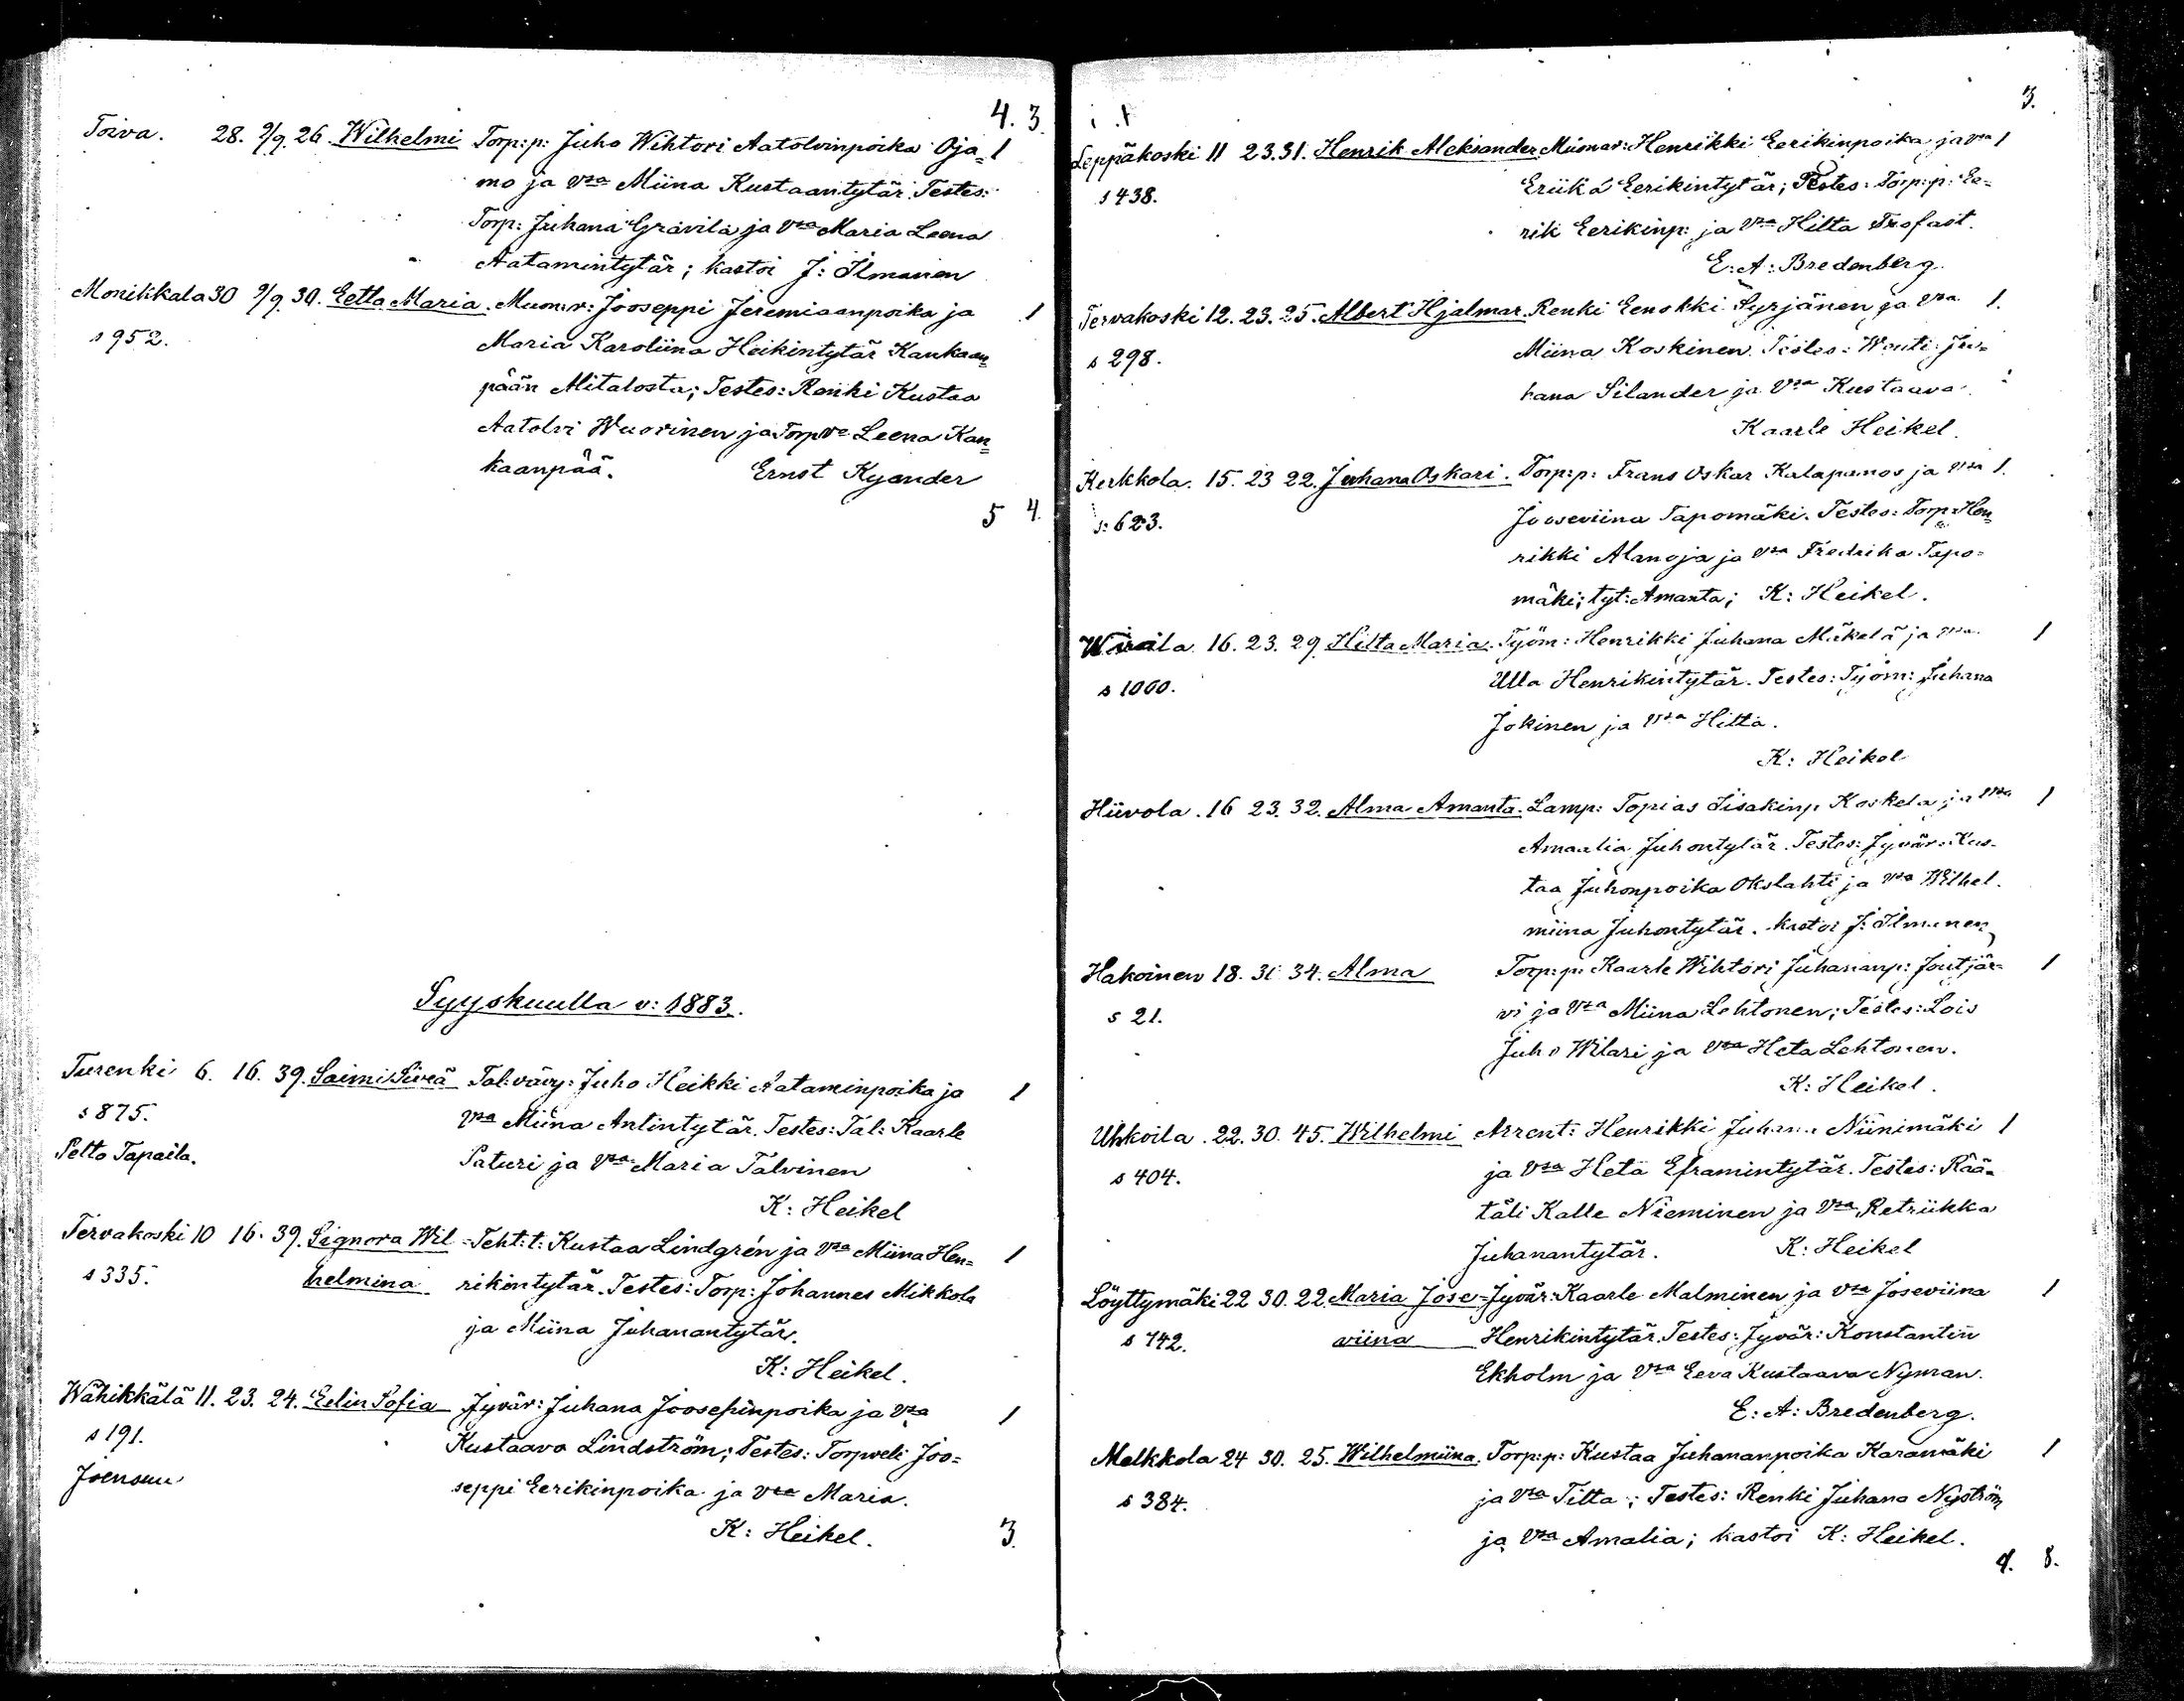 4. 3.
Toiva. 28. 9/9. 26. Wilhelmi Torp:p: Juho Wihtori Aatolvinpoika Oja- 1
mo ja vsa Miina Kustaantytär. Testes:
Torp: Juhana Gravila ja Vsa Maria Leena
Aatamintytär; kastoi J: Ilmanen
Monikkala 30 9/9 30. Eetla Maria. Muon:r: Jooseppi Jeremiaanpoika ja 1
s 952. Maria Karoliina Heikintytär Kankaan=
pään Alitalosta; Testes: Renki Kustaa
Aatolvi Wuorinen ja Leena Kan=
kaanpää. Ernst Kyander
5 4.
Syyskuulla v: 1883.
Turenki 6. 16. 39. Saimi Siviä Tal:vävy: Juho Heikki Aataminpoika ja 1
s 875. vsa Miina Antintytär. Testes: Tal: Kaarle
Pelto Tapaila. Paturi ja Vsa Maria Talvinen
K: Heikel
Tervakoski 10 16. 39. Signora Wil= Teht:t: Kustaa Lindgrén ja Vsa Miina Hen= 1
s 335. helmina rikintytär. Testes: Torp: Johannes Mikkola
ja Miina Juhanantytär.
K: Heikel.
Wähikkälä 11. 23. 24. Eelin Sofia Jyvär: Juhana Joosepinpoika ja Vsa 1
s 191. Kustaava Lindström; Testes: Torpveli Joo=
Joensuu seppi Eerikinpoika ja vsa Maria.
K: Heikel. 3.
3.
Leppäkoski 11 23. 31. Henrik Aleksander Henrikki Eerikinpoika ja vsa 1
s 438. Eriika Eerikintytär; Testes: Torp:p: Ee=
rik Eerikinp: ja Vsa Hilta Trofast.
E: A: Bredenberg.
Tervakoski 12. 23. 25. Albert Hjalmar. Renki Eenokki Syrjänen ja vsa 1.
s 298. Miina Koskinen. Testes: Wouti Ju=
hana Silander ja Vsa Kustaava.
Kaarle Heikel.
Kerkkola. 15. 23 22. Juhana Oskari. Torp:p: Frans Oskar Kalapamos ja vsa 1.
s: 623. Jooseviina Tapomäki. Testes: Torp: Hen=
rikki Alanoja ja vsa Fredrika Tapo=
mäki; tyt: Amanta; K: Heikel.
Wirala 16. 23. 29. Hilta Maria. Työm: Henrikki Juhana Mäkelä ja vsa 1
s 1060. Ulla Henrikintytär. Testes: Työm: Juhana
Jokinen ja Vsa Hilta.
K: Heikel
Hiivola. 16 23. 32. Alma Amanta. Lamp: Topias Iisakinp Koskela ja vsa 1
Amaalia Juhontytär. Testes: Jyvär: Kus-
taa Juhonpoika Okslahti ja vsa Wilhel-
miina Juhontytär. kastoi J: Ilmanen
Hakoinen 18. 31 34. Alma Torp:p: Kaarle Wihtori Juhananp: Joutjär= 1
s 21. vi ja Vsa Miina Lehtonen; Testes: Lois
Juho Wilari ja Vsa Heta Lehtonen.
K: Heikel.
Uhkoila. 22. 30. 45. Wilhelmi Arrent: Henrikki Juhana Niinimäki 1
s 404. ja Vsa Heta Eframintytär. Testes: Rää=
täli Kalle Nieminen ja Vsa Retriikka
Juhanantytär. K: Heikel
Löyttymäki 22 30. 22. Maria Jose= Jyvär: Kaarle Malminen ja Vsa Joseviina 1
s 742. viina Henrikintytär. Testes: Jyvär: Konstantin
Ekholm ja Vsa Eeva Kustaava Nyman.
E: A: Bredenberg.
Melkkola 24 30. 25. Wilhelmiina. Torp:p: Kustaa Juhananpoika Karamäki 1
s 384. ja Vsa Titta; Testes: Renki Juhana Nyström
ja Vsa Amalia; kastoi K: Heikel.
4. 8.